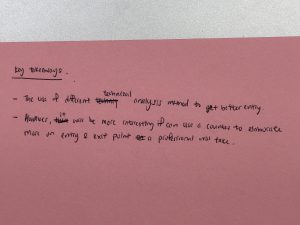 Key Takeaways.
- The use of different technical analysis method to get better entry.
- However, it will be more interesting if can use a counter to elaborate
more on entry & exit point a professional will take.